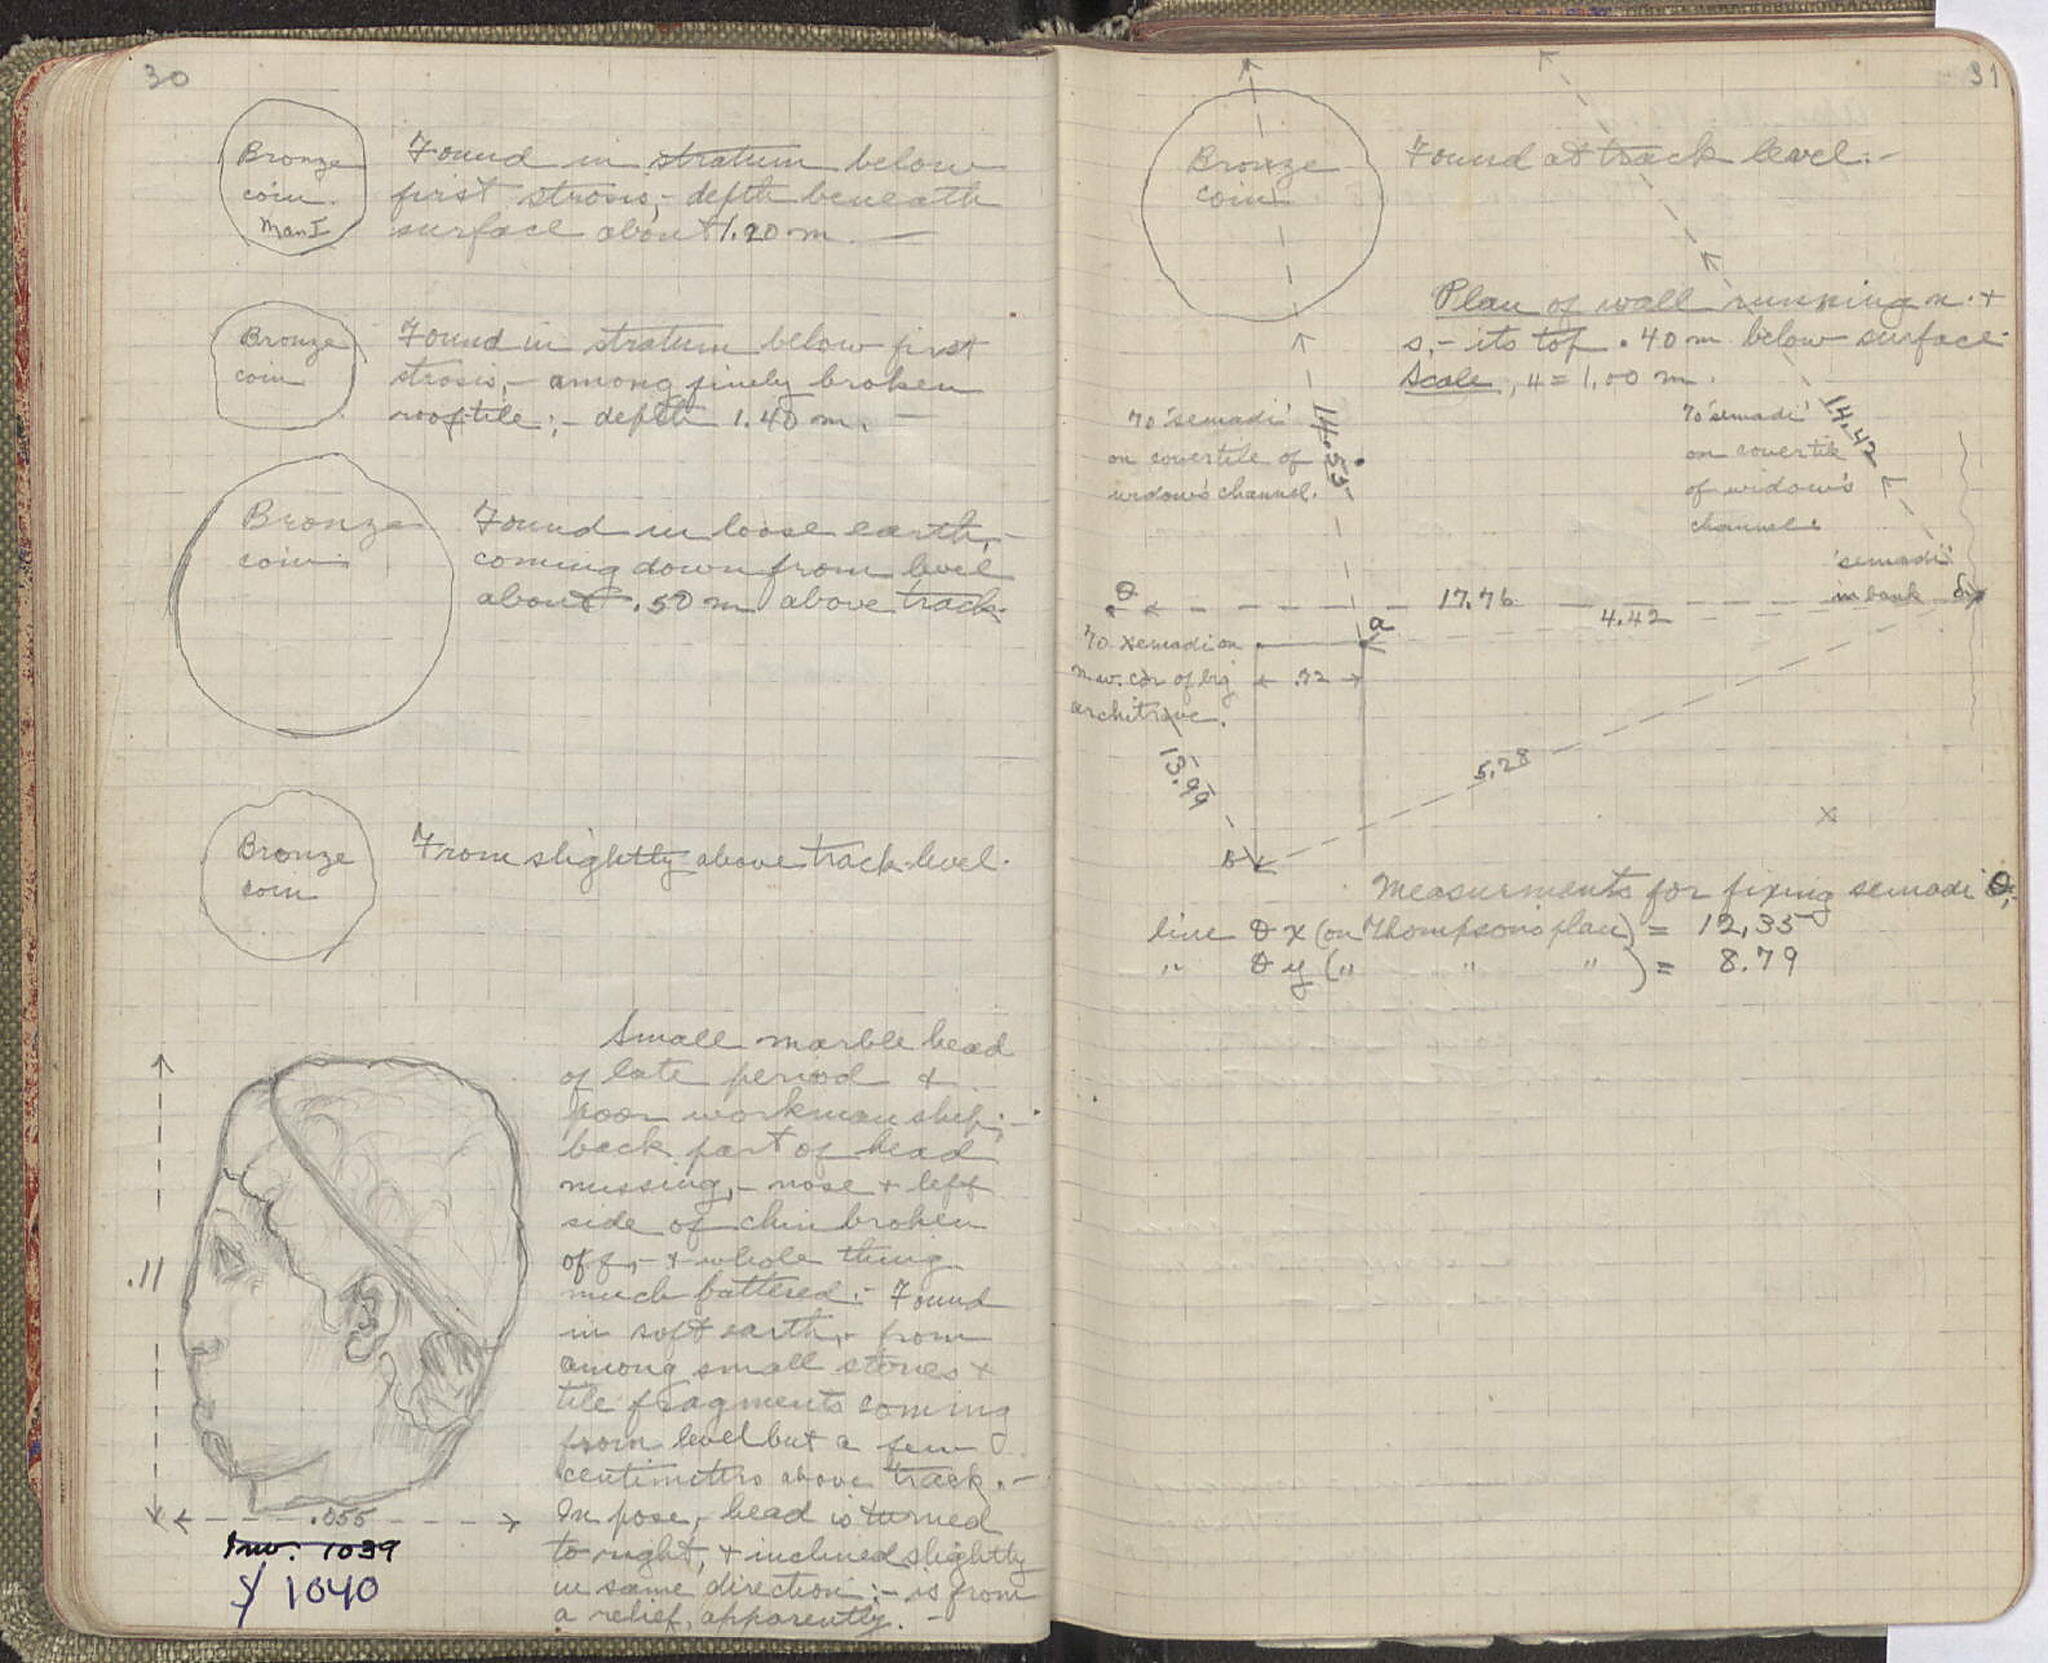 30
Bronze
coin.
Man I
Found in stratum below
first strosis,- depth beneath
surface about 1.20 m. —
Bronze
coin
Found in stratum below first
strosis,- among finely broken
rooftile;- depth 1.40 m. —
Bronze
coin
Found in loose earth,-
coming down from level
about .50 m above track.
Bronze
coin
From slightly above track-level.
Small marble head
of late period +
poor workmanship;-
back part of head
missing,- nose + left
side of chin broken
off,- + whole thing
much battered.- Found
in soft earth,- from
among small stones +
tile fragments coming
from level but a few
centimetres above track.-
In pose,- head is turned
to right, + inclined slightly
in same direction:- is from
a relief, apparently. -
.11
.055
Inv. 1039
1040
31
Bronze
coin
Found at track level.-
Plan of wall running n. +
s,- its top .40 m below surface.
Scale, 4 = 1.00 m.
To 'semadi'
on covertile of
widow's channel.
14.53
To 'semadi'
on covertile
of widow's
channel
14.42
'semadi'
in bank
θ
17.76
4.42
a
To semadi on
n.w. cor of big
architrave.
.72
13.99
5.28
b
x
Measurments for fixing semadi θ,-
line θ x (on Thompson's plan) = 12,35
" θ y (" " ") = 8.79